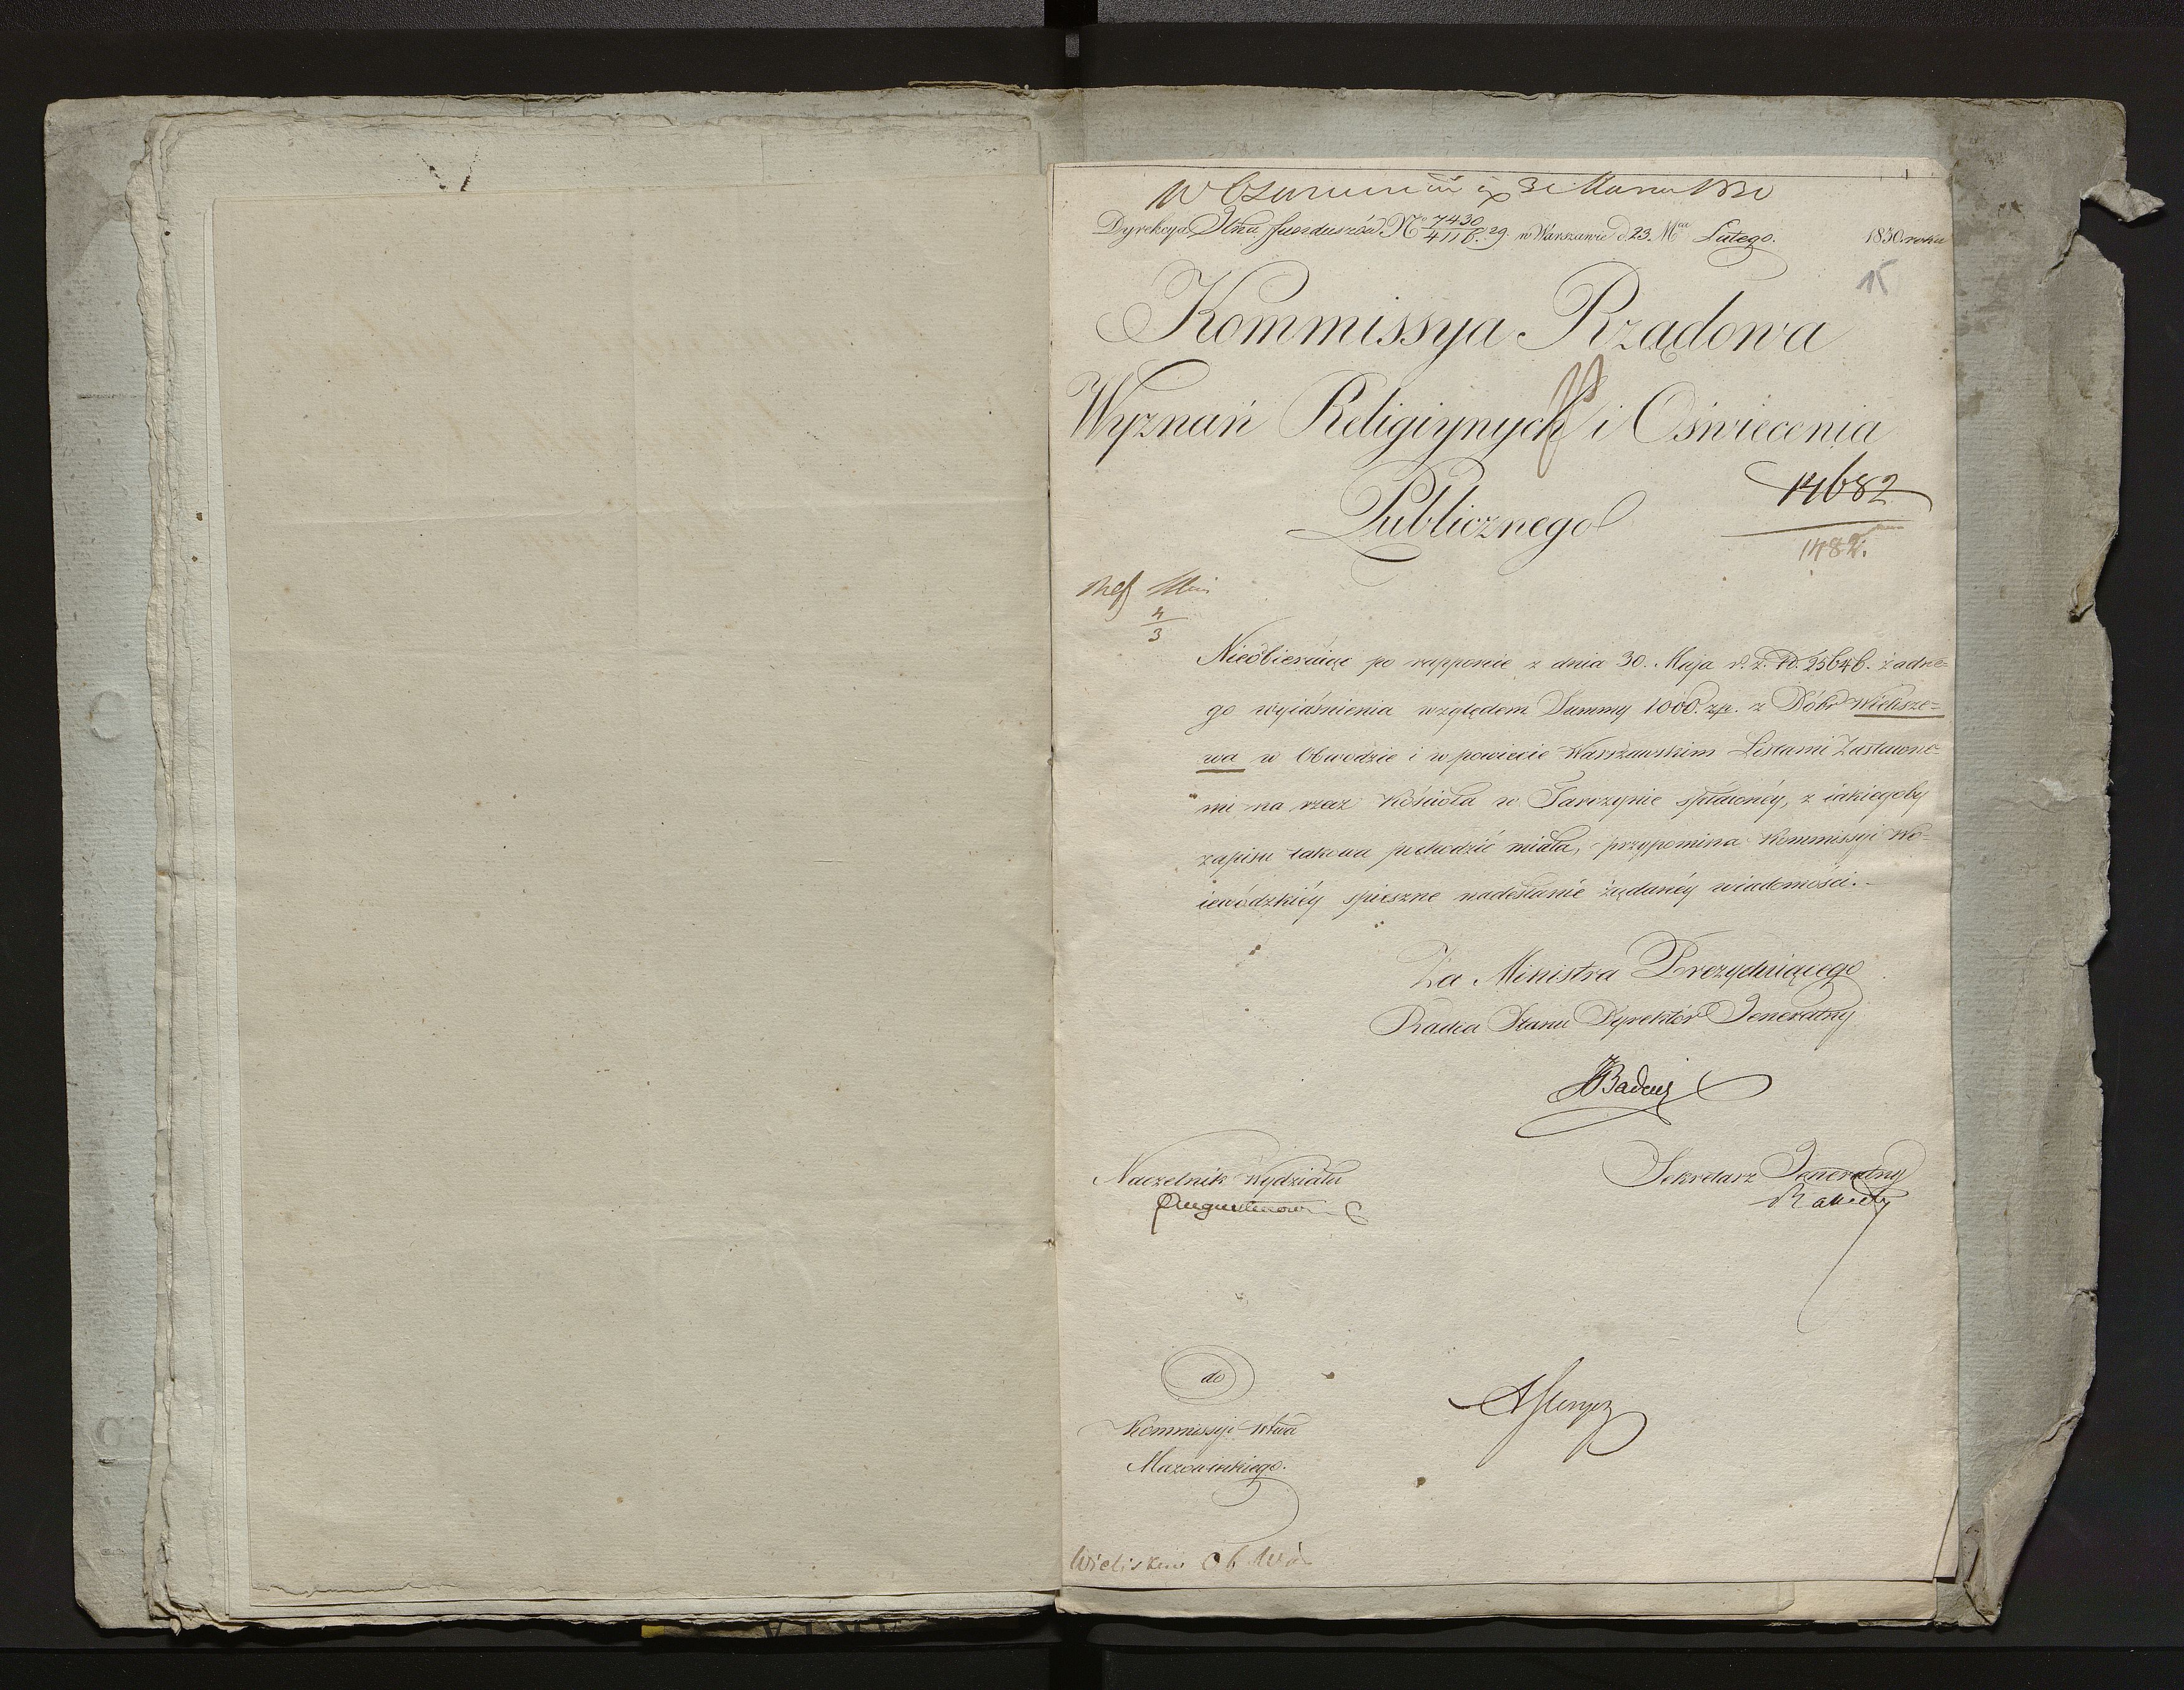 31 Marca 1830
Dyrekcya Jlna funduszów Nº 7430/4116. 29. w Warszawie d. 23 Mca Lutego. 1830. roku
15
Kommissya Rządowa
Wyznań Religiynych i Oświecenia
Publicznego
14682
1482.
4/3
Nieodbieraiąc po rapporcie z dnia 30. Maja r. z. N. 25646. żadne=
go wyiaśnienia względem Summy 1000. zp. z Dóbr Wielisze=
wa w Obwodzie i w powiecie Warszawskim Listami Zastawne-
mi na rzecz Kościoła w Tarczynie spłaconéy, z iakiegoby
zapisu takowa pochodzić miała, przypomina Kommissyi Wo=
iewódzkiéy spieszne nadesłanie żądanéy wiadomości.-
Za Ministra Prezyduiącego
Radca Stanu Dyrektor Jeneralny
Badeni
Naczelnik Wydziału
Sekretarz Jeneralny
Augustinowicz
do
Kommissyi Wtwa
Mazowieckiego.
Ob. War